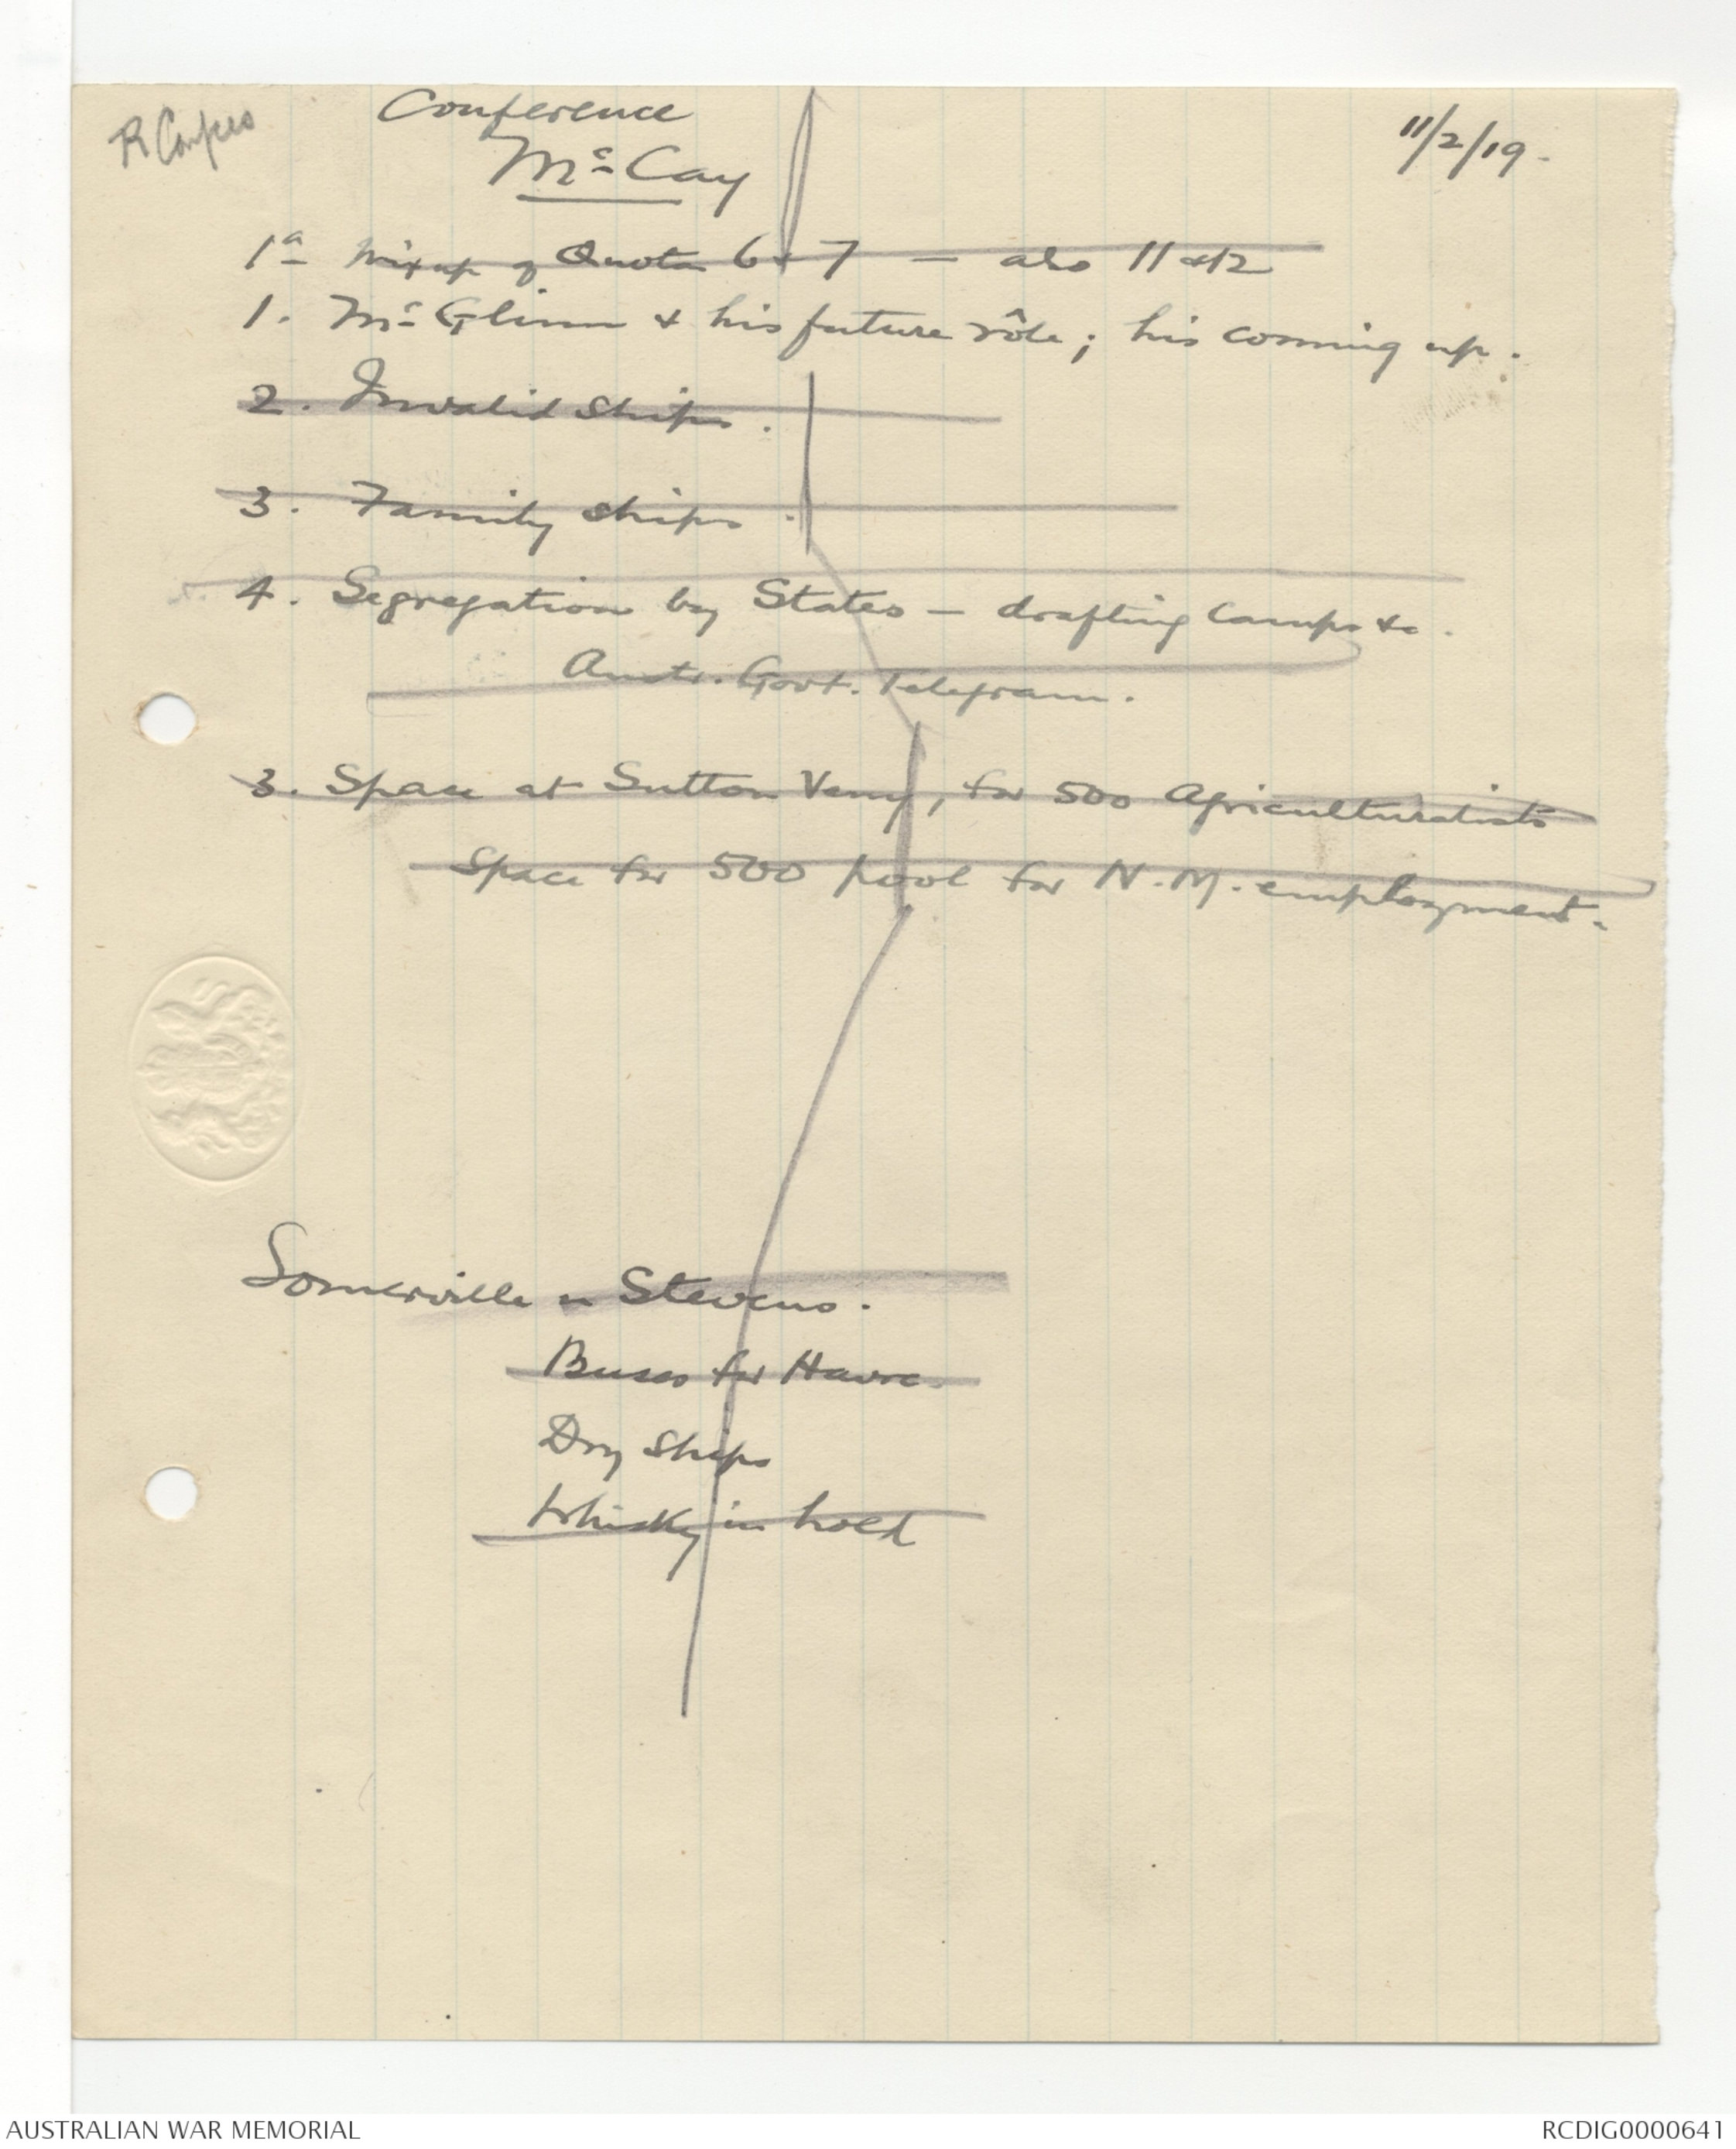 Conference
McCay
11/2/19.
1a Mix up of Quotas 6 & 7 — also 11 & 12
1. McGlinn & his future rôle; his coming up.
2. Invalid Ships.
3. Family ships.
4. Segregation by States — drafting camps &c.
Austr. Govt. Telegram.
3. Space at Sutton Veny, for 500 Agriculturalists
Space for 500 pool for N.M. employment.
Somerville Stevens.
Buses for Havre.
Dry Ships
Whisky in hold
AUSTRALIAN WAR MEMORIAL
RCDIG0000641